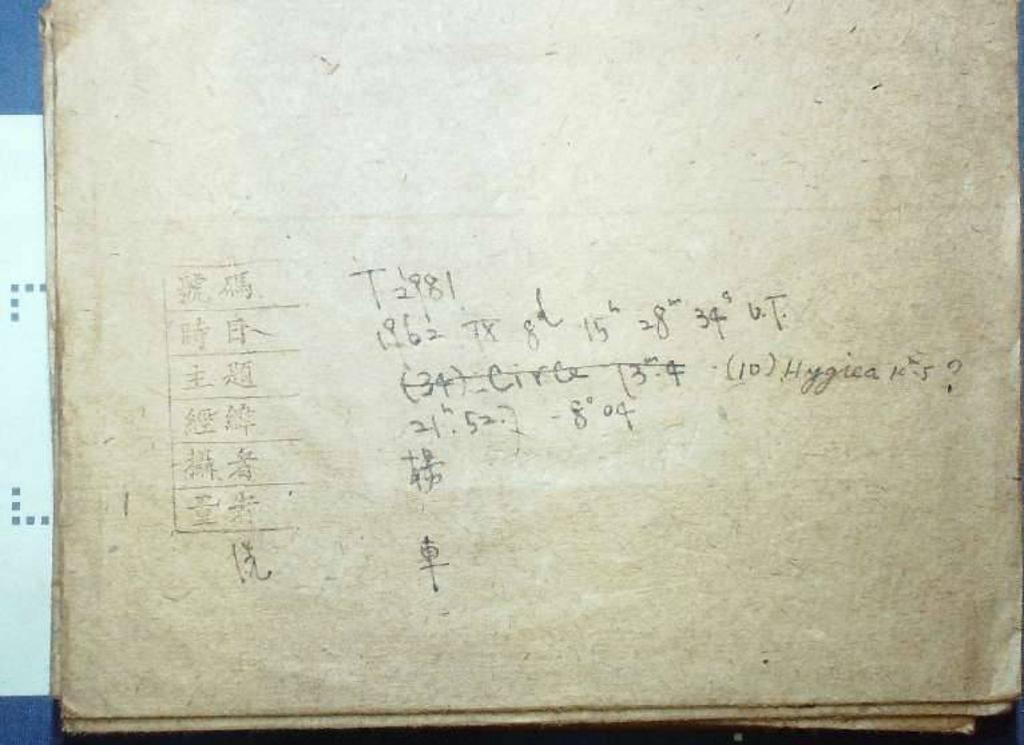 號碼 T2981
時日 1962 IX 8d 15h 28m 34s U.T.
主題 (34) Circe 13m.4 (10) Hygiea ?
經緯 21h.52. -8°04
攝者 楊
量者
洗 車